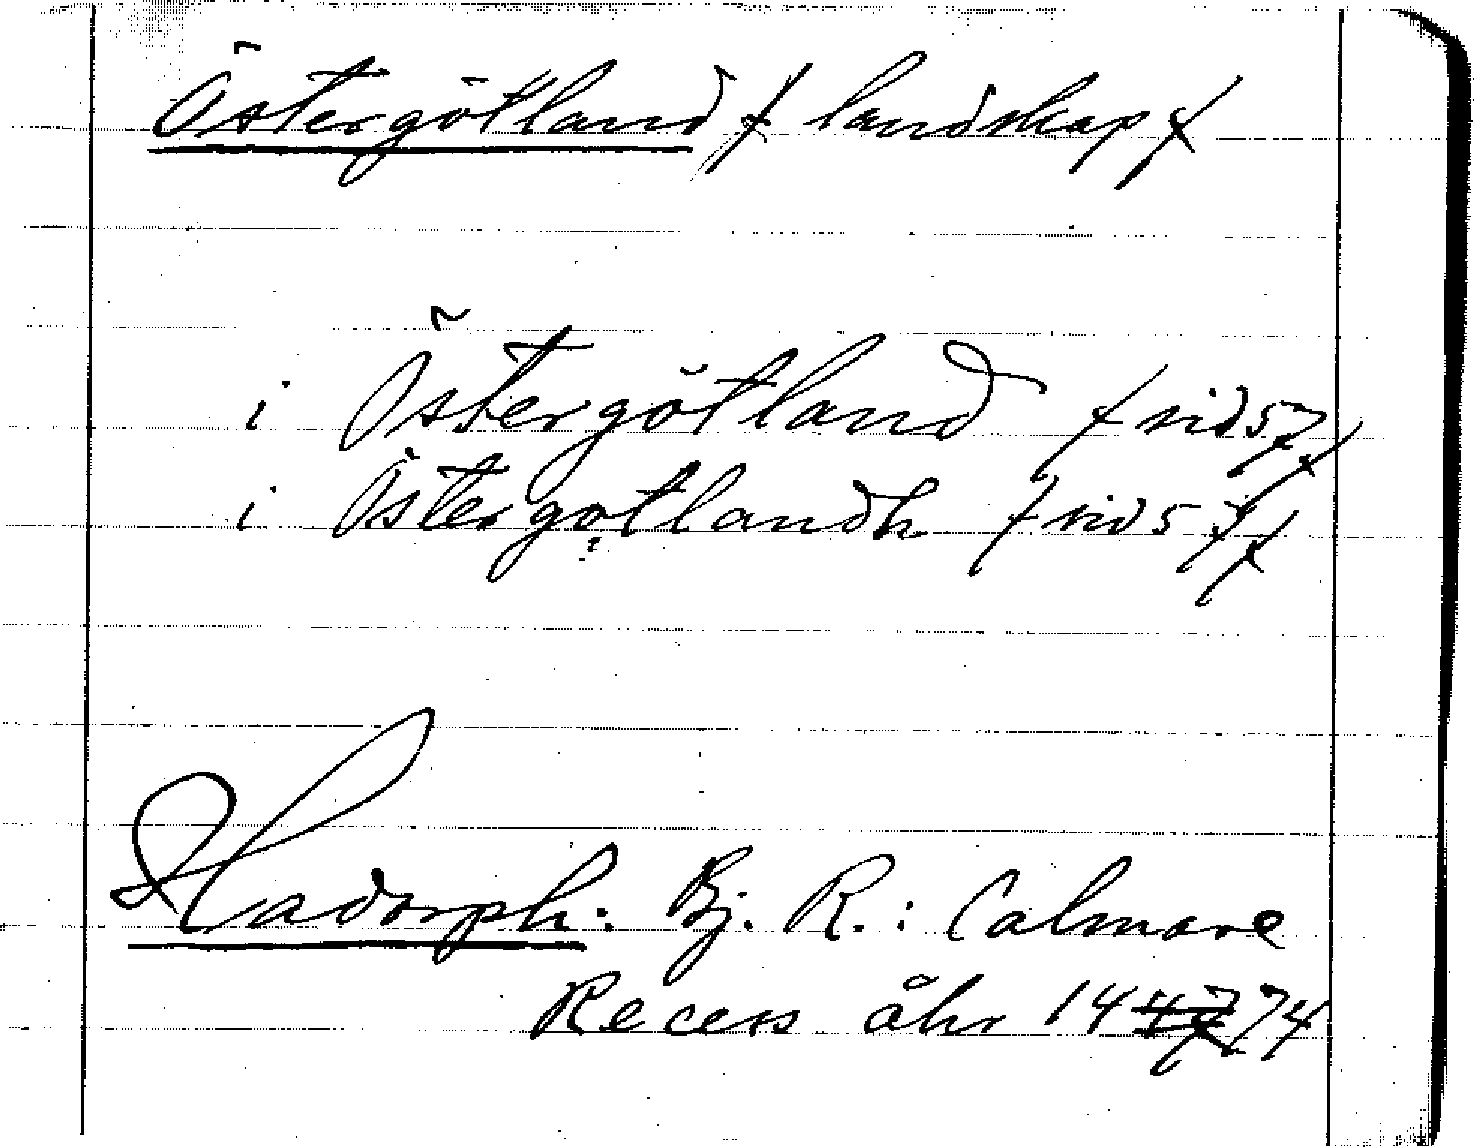 Östergötland / landskap /
i Östergötland / sid 57 /
i Östergötlandh / sid 57 /
Hadorph: Bj. R.: Calmare
Recess åhr 1474